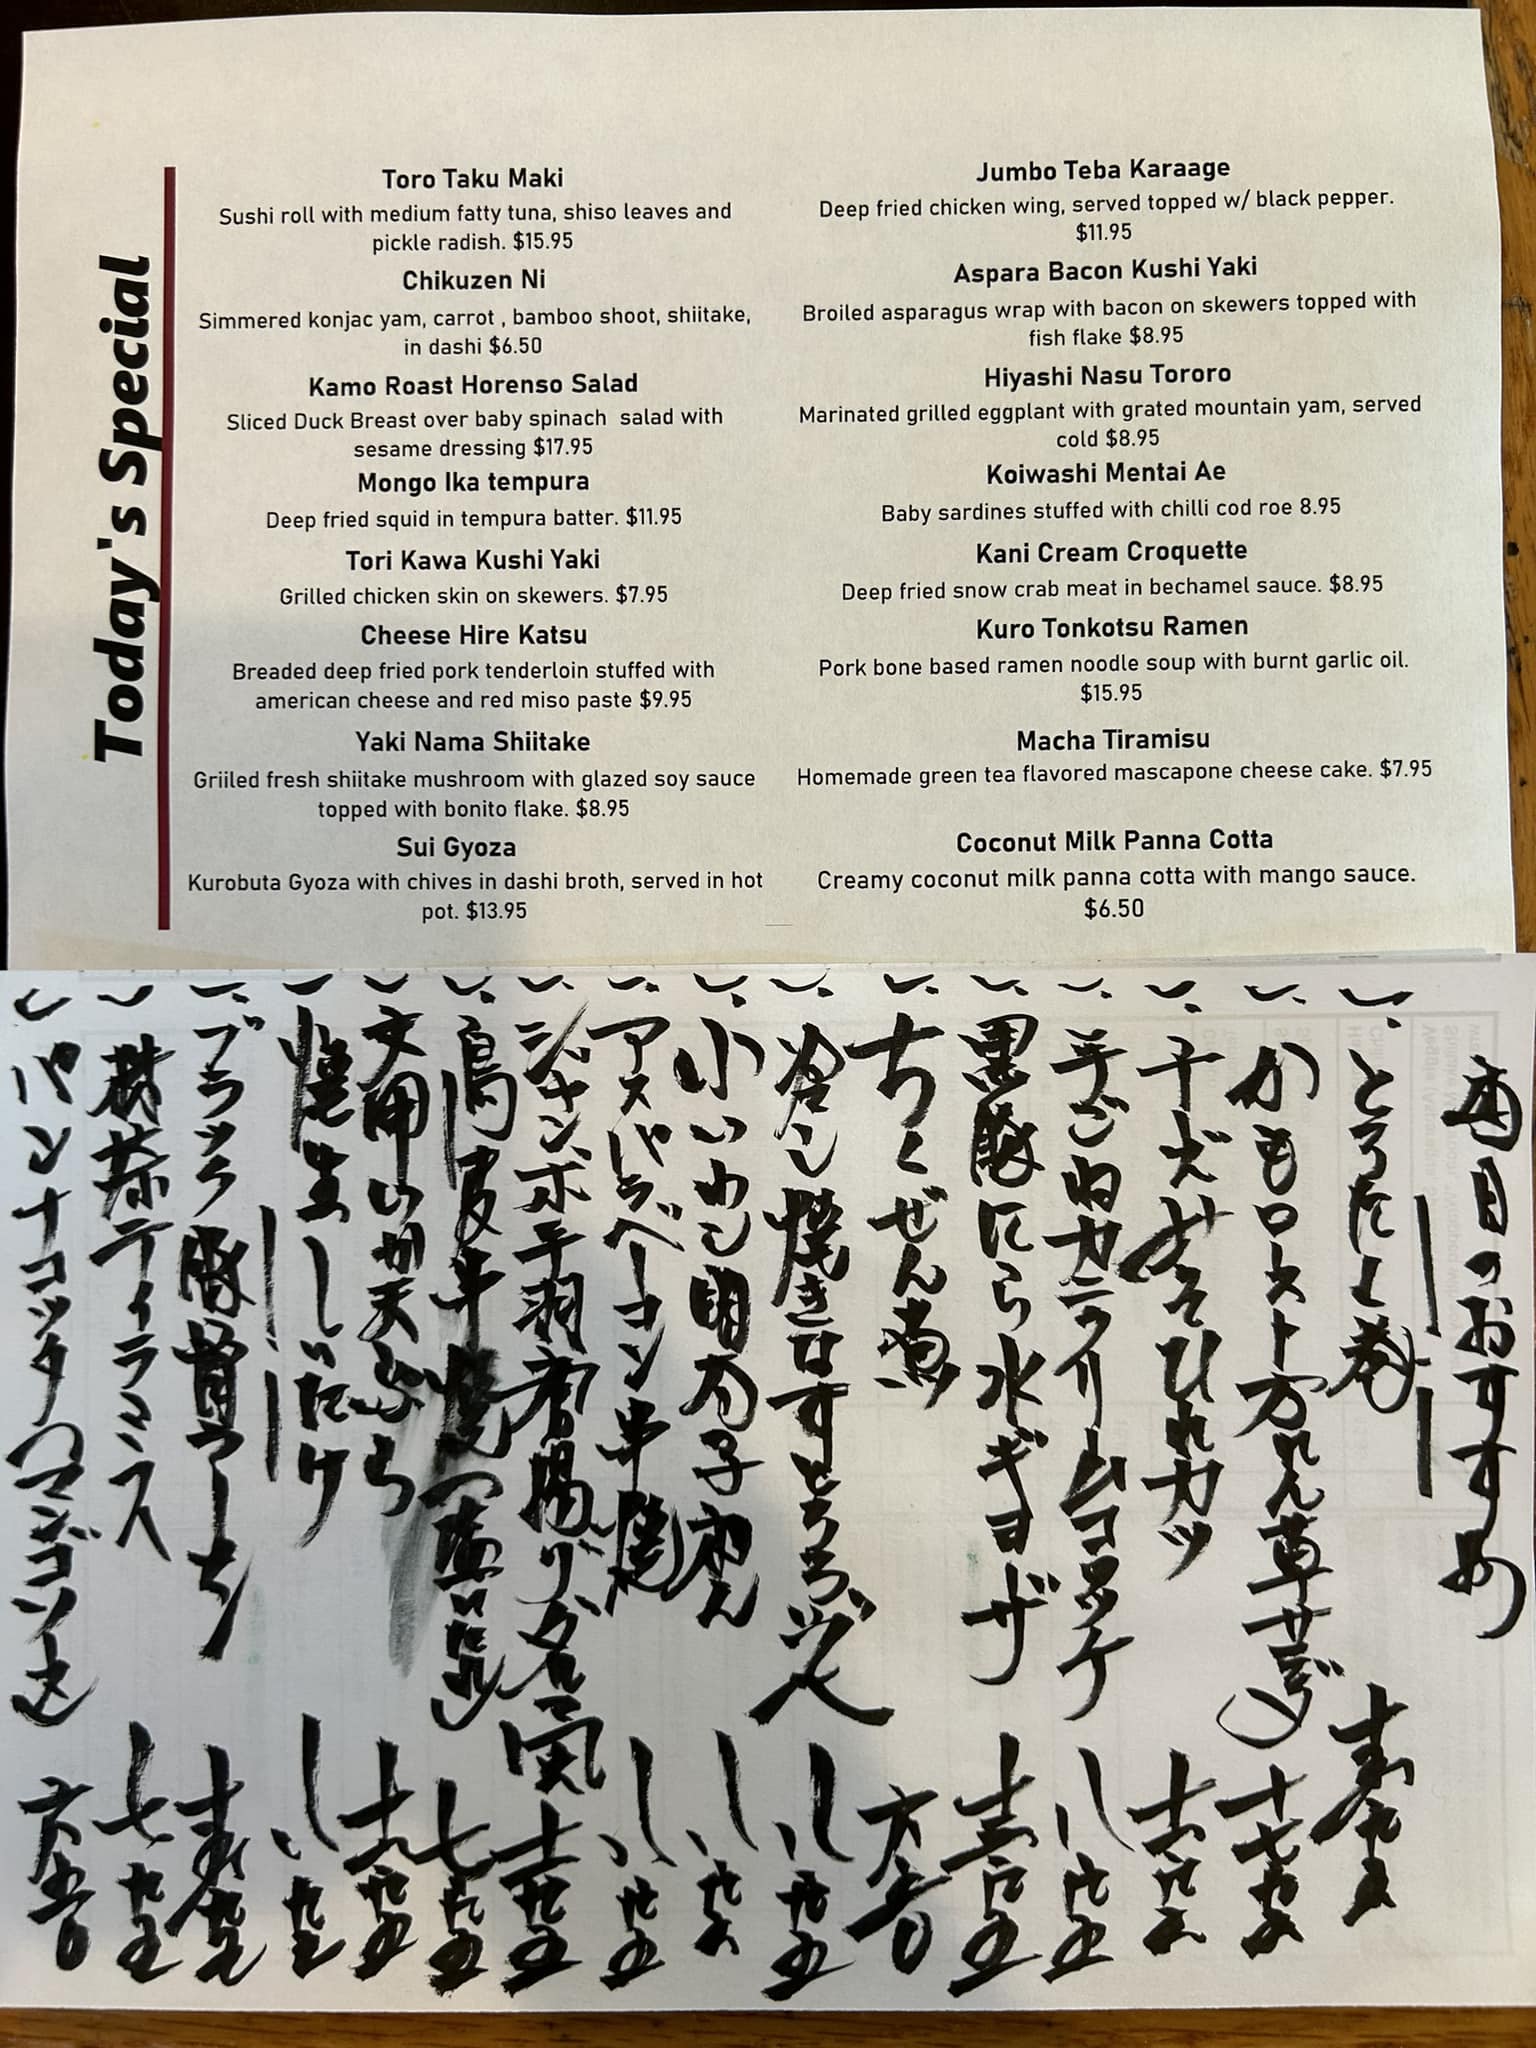 Today's Special
Toro Taku Maki
Sushi roll with medium fatty tuna, shiso leaves and
pickle radish. $15.95
Chikuzen Ni
Simmered konjac yam, carrot , bamboo shoot, shiitake,
in dashi $6.50
Kamo Roast Horenso Salad
Sliced Duck Breast over baby spinach salad with
sesame dressing $17.95
Mongo Ika tempura
Deep fried squid in tempura batter. $11.95
Tori Kawa Kushi Yaki
Grilled chicken skin on skewers. $7.95
Cheese Hire Katsu
Breaded deep fried pork tenderloin stuffed with
american cheese and red miso paste $9.95
Yaki Nama Shiitake
Griiled fresh shiitake mushroom with glazed soy sauce
topped with bonito flake. $8.95
Sui Gyoza
Kurobuta Gyoza with chives in dashi broth, served in hot
pot. $13.95
Jumbo Teba Karaage
Deep fried chicken wing, served topped w/ black pepper.
$11.95
Aspara Bacon Kushi Yaki
Broiled asparagus wrap with bacon on skewers topped with
fish flake $8.95
Hiyashi Nasu Tororo
Marinated grilled eggplant with grated mountain yam, served
cold $8.95
Koiwashi Mentai Ae
Baby sardines stuffed with chilli cod roe 8.95
Kani Cream Croquette
Deep fried snow crab meat in bechamel sauce. $8.95
Kuro Tonkotsu Ramen
Pork bone based ramen noodle soup with burnt garlic oil.
$15.95
Macha Tiramisu
Homemade green tea flavored mascapone cheese cake. $7.95
Coconut Milk Panna Cotta
Creamy coconut milk panna cotta with mango sauce.
$6.50
本日のおすすめ
一、とろたく巻
一、かもロースト方れん草サラダ 十七九五
一、みそひれカツ
一、手ごねカニクリームコロッケ 八、九五
一、黒豚にら水ギョーザ
一、ちくぜん煮 六、五〇
一、冷し焼きなすとろろ 八、九五
一、小いわし明太子 八、九五
一、アスパラベーコン串焼 八、九五
一、ジャンボ手羽唐揚げ 十一九五
一、鳥皮串焼 七、九五
一、文甲いか天ぷら 十一九五
一、焼生しいたけ 八、九五
一、ブラック豚骨らーめん
一、抹茶ティラミス 七、九五
一、パンナコッタ マンゴソース 六、五〇